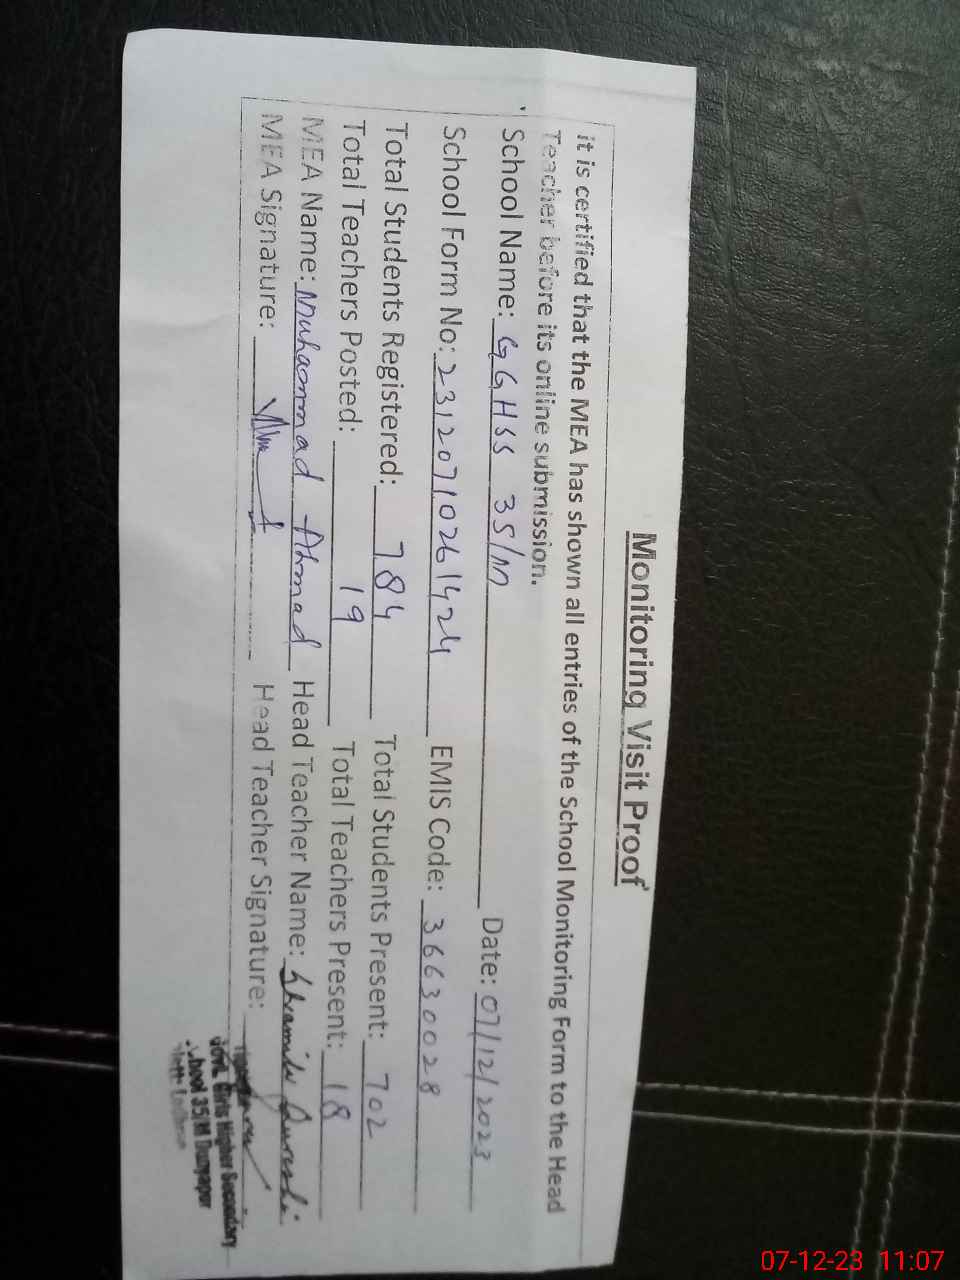 Monitoring Visit Proof
it is certified that the MEA has shown all entries of the School Monitoring Form to the Head
Teacher before its online submission.
School Name: GGHSS 35/M Date: 07/12/2023
School Form No: 23120710261424 EMIS Code: 36630028
Total Students Registered: 784 Total Students Present: 702
Total Teachers Posted: 19 Total Teachers Present: 18
MEA Name: Muhammad Ahmad Head Teacher Name: Qureshi
MEA Signature: Head Teacher Signature:
Govt. Girls Higher Secondary
School 35/M Dunyapur
07-12-23 11:07